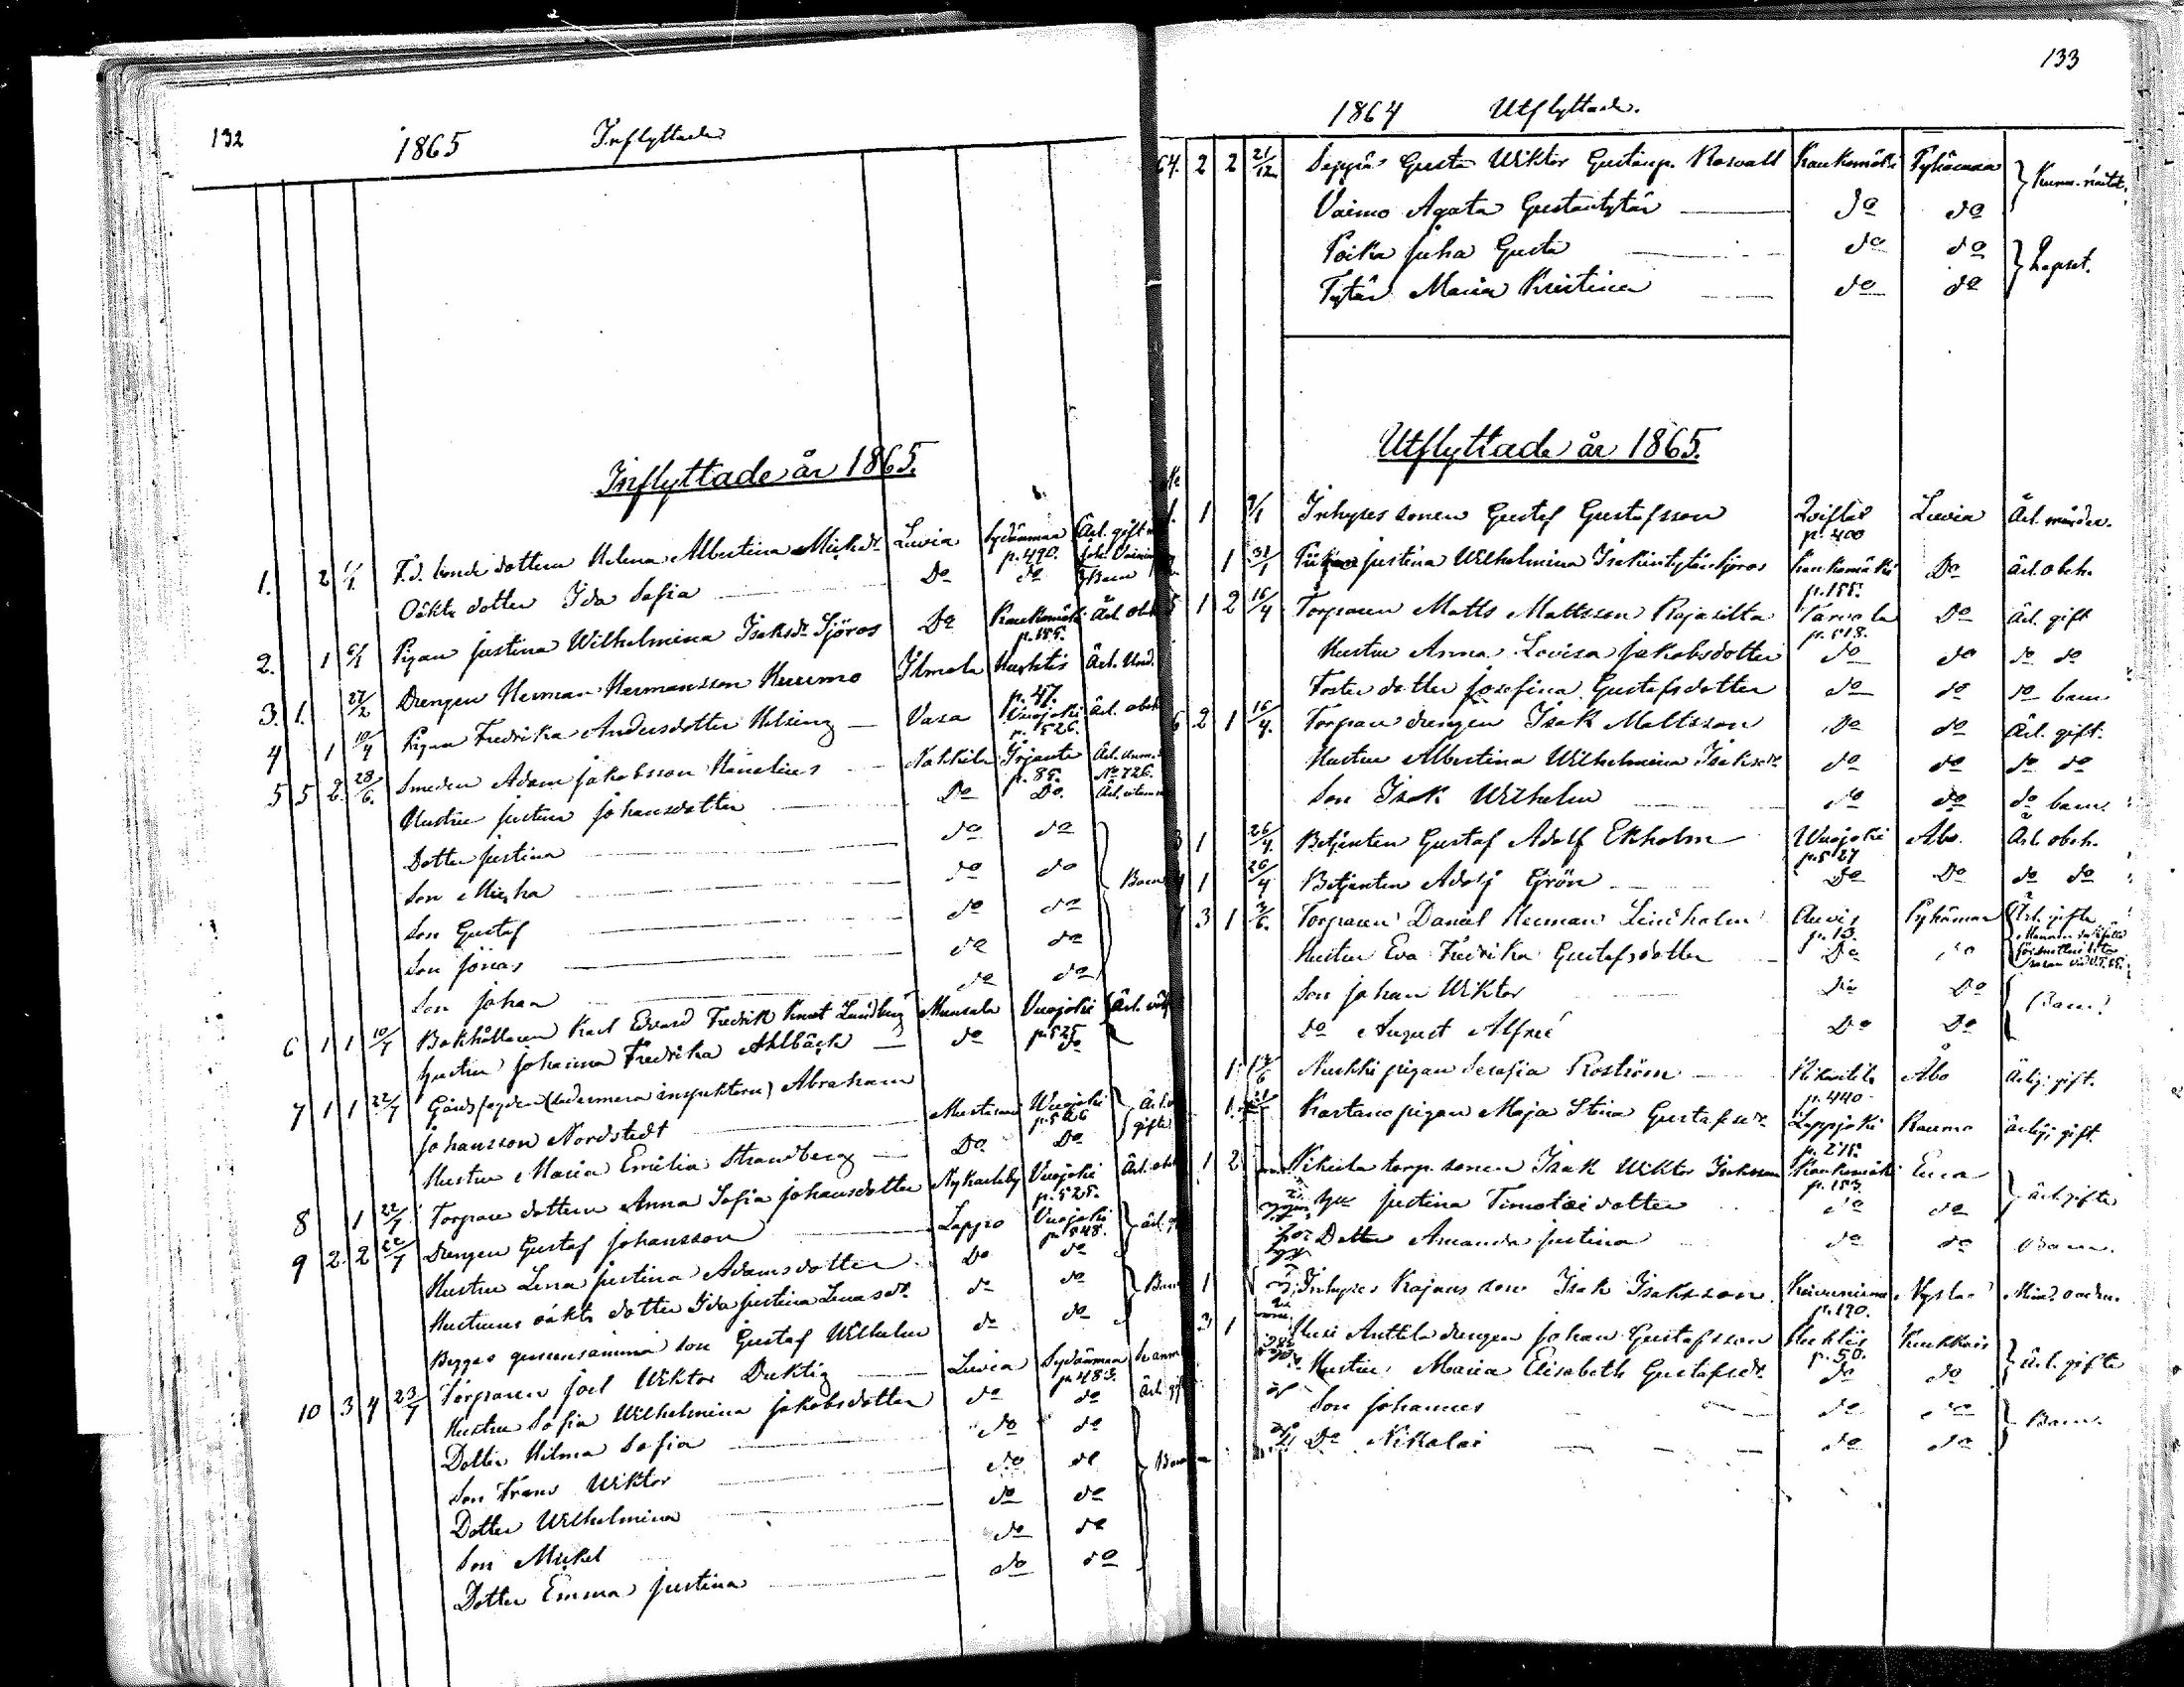 132
1865 Inflyttade
Inflyttade år 1865.
1. 2 1/1 F.d. bonde dottern Helena Albertina Mickelsdr Luvia Sydänmaa p. 490. Ärl. gift
Oäkta dotter Ida Sofia Do do Barn
2. 1 6/1 Pigan Justina Wilhelmina Isaksdr Sjöros Do Kaukomäki p. 155. Ärl. obeh
3. 1. 27/2 Drengen Herman Hermansson Kuurmo Ilmola Huhtis p. 47. Ärl. und.
4 1 10/4 Pigan Fredrika Andersdotter Helsing Vasa Vuojoki p. 526. Ärl. obeh
5 5 2. 28/6. Smeden Adam Jakobsson Hanelius Nakkila Irjanta p. 85. Ärl. No 726.
Hustru Justina Johansdotter Do Do.
Dotter Justina do do
Son Micha do do
Son Gustaf do do Barn
Son Jonas do do
Son Johan do do
6 1 1 10/7 Bokhållaren Karl Edvard Fredrik Knut Lundberg Munsala Vuojoki p. 525 Ärl.
Hustru Johanna Fredrika Ahlbäck do do
7 1 1 22/7 Gårdsfogden (ladermera inspektorn) Abraham
Johansson Nordstedt Mustasaari Wuojoki p. 526 Ärl.
Hustru Maria Emilia Strandberg Do Do gifte
8 1 22/7 Torpare dottern Anna Sofia Johansdotter Nykarleby Vuojoki p. 525. Ärl. obeh
9 2. 2 22/7 Drengen Gustaf Johansson Lappo Vuojoki p. 548. ärl.
Hustru Lena Justina Adamsdotter Do do
Hustruns oäkta dotter Ida Justina Lenasdr do do Barn
Begges gemensamma son Gustaf Wilhelm do do
10 3 4 23/7 Torparen Joel Wiktor Duktig Luvia Sydänmaa p. 483.
Hustru Sofia Wilhelmina Jakobsdotter do do Ärl.
Dotter Hilma Sofia do do
Son Frans Wiktor do do
Dotter Wilhelmina do do
Son Mickel do do
Dotter Emma Justina do do
133
1864 Utflyttade.
64. 2 2 21/12 Seppä Gusta Wiktor Gustanp. Roswall Kaukomäki Pyhämaa Kunn. naitet.
Vaimo Agata Gustantytär do do
Poika Juha Gusta do do Lapset.
Tytär Maria Kristina do do
Utflyttade år 1865.
1. 1 Inhyses sonen Gustaf Gustafsson p. 400 Luvia
1 31/1 Justina Wilhelmina Isakintytär Sjöros Kaukomäki p. 155. Do Ärl. obeh.
1 2 16/4 Torparen Matts Mattsson Rajasilta p. 518. Do Ärl. gift
Hustru Anna Lovisa Jakobsdotter do do do do
Foster dotter Josefina Gustafsdotter do do do barn
6 2 1 16/4. Torpare drengen Isak Mattsson Do do Ärl. gift.
Hustru Albertina Wilhelmina Isaksdr do do do do
Son Isak Wilhelm do do do barn.
1 26/4. Betjenten Gustaf Adolf Ekholm Wuojoki p. 527 Åbo. Ärl. obeh.
1 26/4 Betjenten Adolf Grön Do Do do do
3 1 3/6. Torparen Daniel Herman Lindholm p. 13. Pyhämaa Ärl. gifte
Hustru Eva Fredrika Gustafsdotter Do
Son Johan Wiktor Do Do Barn
do August Alfred Do Do
1 Nurkki pigan Serafia Roström p. 440 Åbo Ärlig. gift.
1. Kartano pigan Maja Stina Gustafsdr Lappjoki p. 275. Raumo ärlig. gift.
1 2 Kikerla torp. sonen Isak Wiktor Isaksson Kaukomäki p. 153. Eura
Justina Timoteidotter do do ärl. gifte
Dotter Amanda Justina do do Barn.
1 Inhyses Kajaus son Isak Isaksson p. 190.
3 1 Uusi Anttila drengen Johan Gustafsson Huhtis p. 50.
Hustru Maria Elisabeth Gustafsdr do do ärl. gifte
Son Johannes do do
Do Nikolai do do Barn.